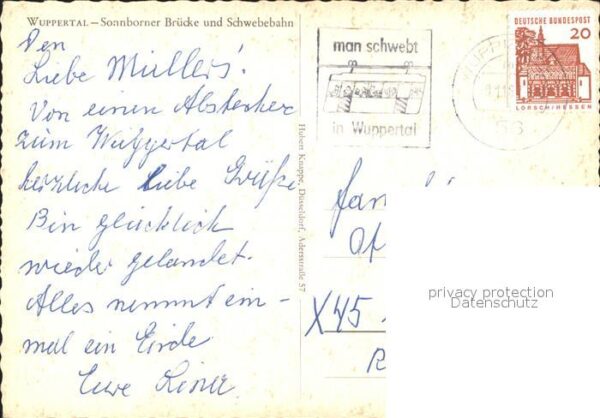 WUPPERTAL – Sonnborner Brücke und Schwebebahn
Den
Liebe Müllers!
Von einem Abstecher
zum Wuppertal
herzliche liebe Grüße
Bin glücklich
wieder gelandet.
Alles nimmt ein-
mal ein Ende
Eure
Hubert Knuppe, Düsseldorf, Adersstraße 57
man schwebt
in Wuppertal
WUPP
56
DEUTSCHE BUNDESPOST
20
LORSCH/HESSEN
Fam
X45
privacy protection
Datenschutz